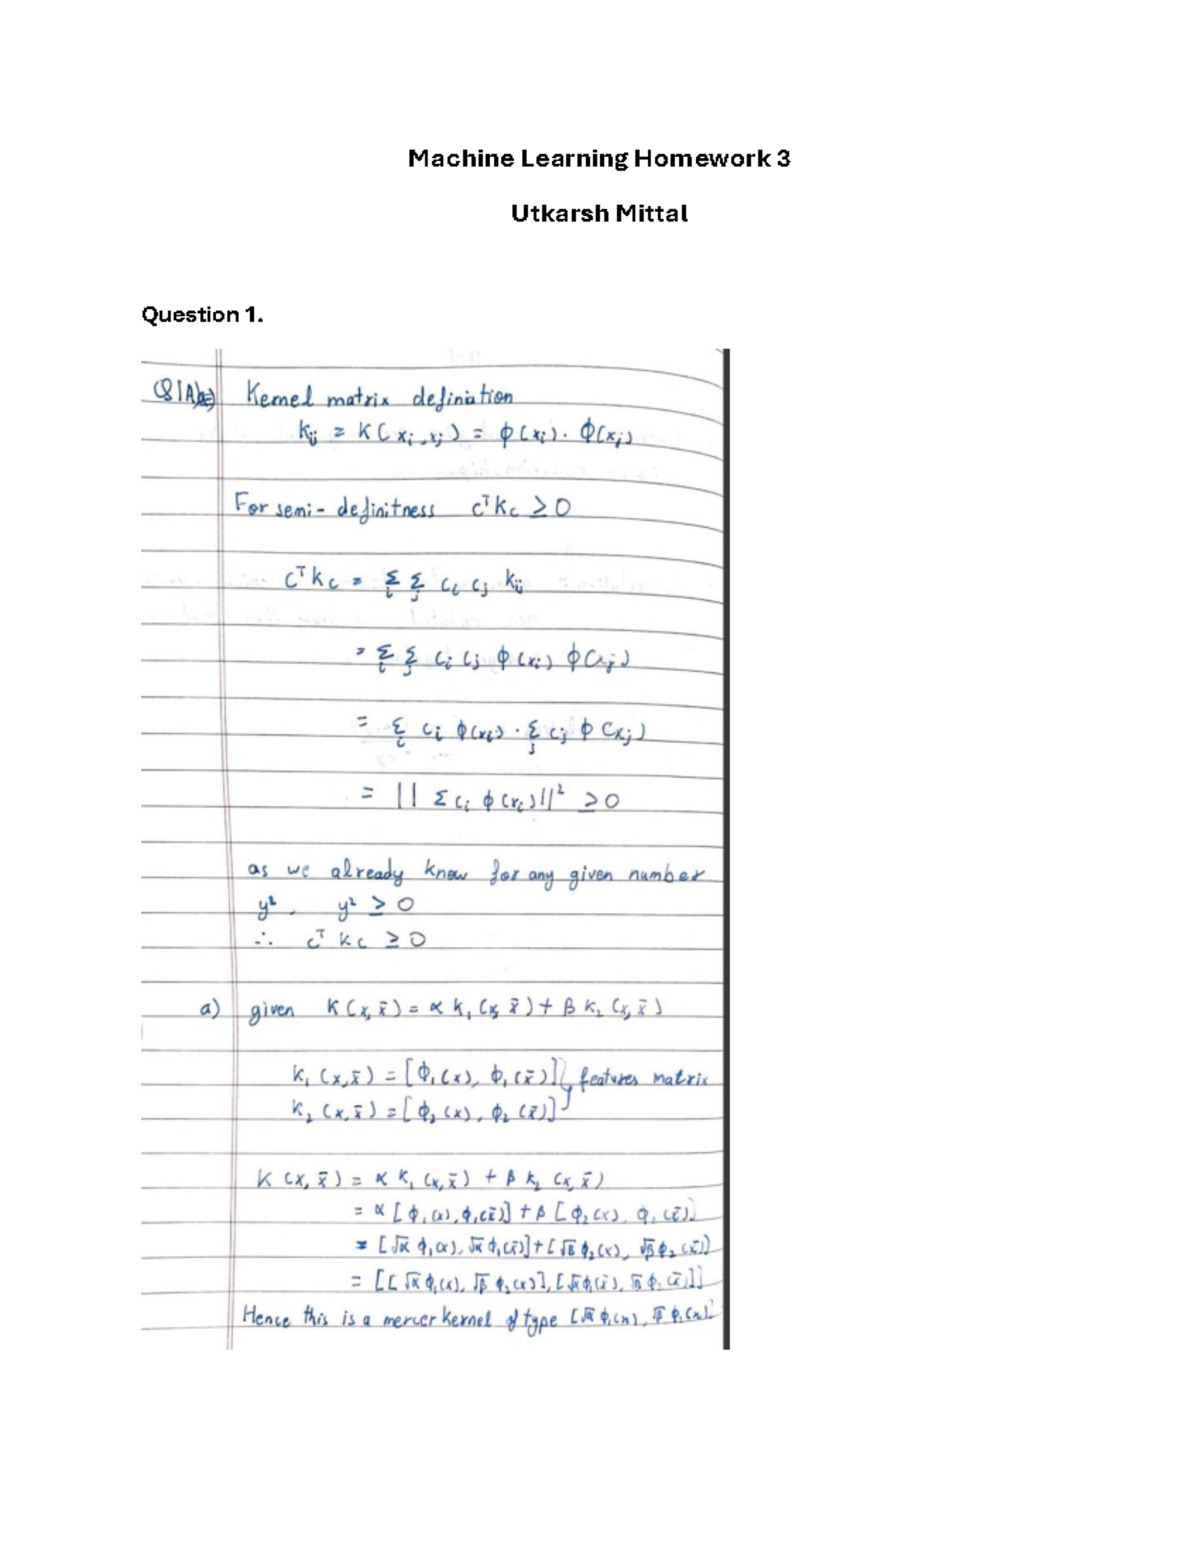 Machine Learning Homework 3
Utkarsh Mittal
Question 1.
Kernel matrix definiation
Kij = K(xi, xj) = φ(xi). φ(xj)
For semi-definitness cᵀKc ≥ 0
cᵀKc = Σi Σj ci cj Kij
= Σi Σj ci cj φ(xi) φ(xj)
= Σi ci φ(xi) · Σj cj φ(xj)
= || Σ ci φ(xi)||² ≥ 0
as we already know for any given number
y², y² ≥ 0
∴ cᵀ Kc ≥ 0
a) given K(x, x̄) = α K₁(x, x̄) + β K₂(x, x̄)
K₁(x, x̄) = [φ₁(x), φ₁(x̄)] features matrix
K₂(x, x̄) = [φ₂(x), φ₂(x̄)]
K(x, x̄) = α K₁(x, x̄) + β K₂(x, x̄)
= α [φ₁(x), φ₁(x̄)] + β [φ₂(x), φ₁(x̄)]
= [√α φ₁(x), √α φ₁(x̄)] + [√β φ₂(x), √β φ₂(x̄)]
= [[√α φ₁(x), √β φ₂(x)], [√α φ₁(x̄), √β φ₁(x̄)]]
Hence this is a mercer kernel of type [√α φ₁(x), √β φ₁(x)]